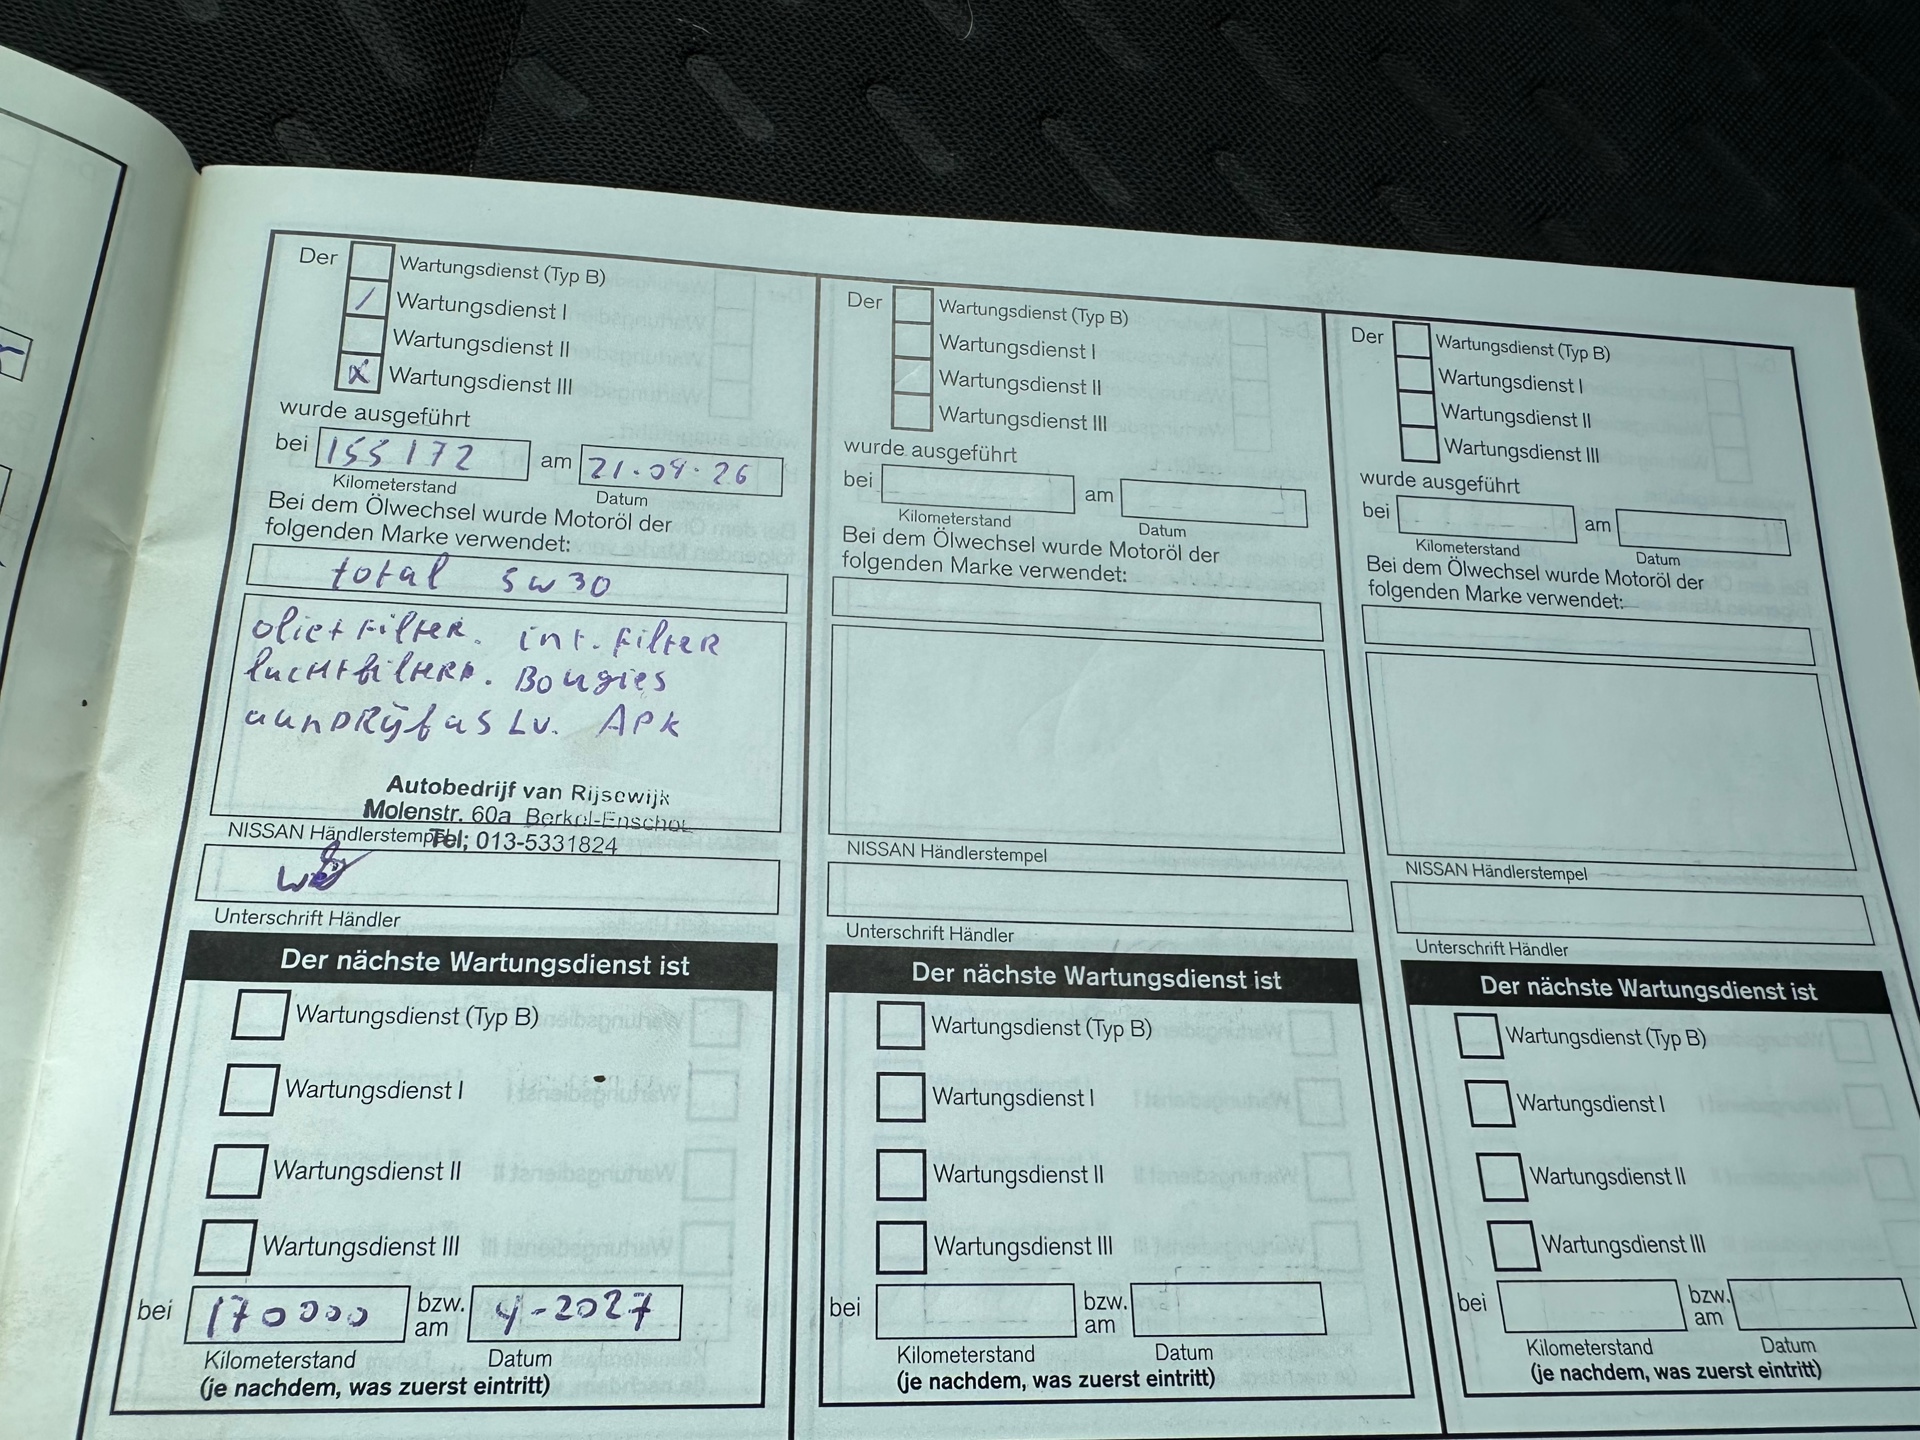 Der
Wartungsdienst (Typ B)
/ Wartungsdienst I
Wartungsdienst II
x Wartungsdienst III
wurde ausgeführt
bei 155172 am 21.04.26
Kilometerstand Datum
Bei dem Ölwechsel wurde Motoröl der
folgenden Marke verwendet:
total 5w30
oliet Filter. int. Filter
luchtfilter. Bougies
aandRijfas Lv. APK
Autobedrijf van Rijsewijk
Molenstr. 60a Berkel-Enschot
Tel; 013-5331824
NISSAN Händlerstempel
Unterschrift Händler
Der nächste Wartungsdienst ist
Wartungsdienst (Typ B)
Wartungsdienst I
Wartungsdienst II
Wartungsdienst III
bei 170000 bzw. am 4-2027
Kilometerstand Datum
(je nachdem, was zuerst eintritt)
Der
Wartungsdienst (Typ B)
Wartungsdienst I
Wartungsdienst II
Wartungsdienst III
wurde ausgeführt
bei am
Kilometerstand Datum
Bei dem Ölwechsel wurde Motoröl der
folgenden Marke verwendet:
NISSAN Händlerstempel
Unterschrift Händler
Der nächste Wartungsdienst ist
Wartungsdienst (Typ B)
Wartungsdienst I
Wartungsdienst II
Wartungsdienst III
bei bzw. am
Kilometerstand Datum
(je nachdem, was zuerst eintritt)
Der
Wartungsdienst (Typ B)
Wartungsdienst I
Wartungsdienst II
Wartungsdienst III
wurde ausgeführt
bei am
Kilometerstand Datum
Bei dem Ölwechsel wurde Motoröl der
folgenden Marke verwendet:
NISSAN Händlerstempel
Unterschrift Händler
Der nächste Wartungsdienst ist
Wartungsdienst (Typ B)
Wartungsdienst I
Wartungsdienst II
Wartungsdienst III
bei bzw. am
Kilometerstand Datum
(je nachdem, was zuerst eintritt)